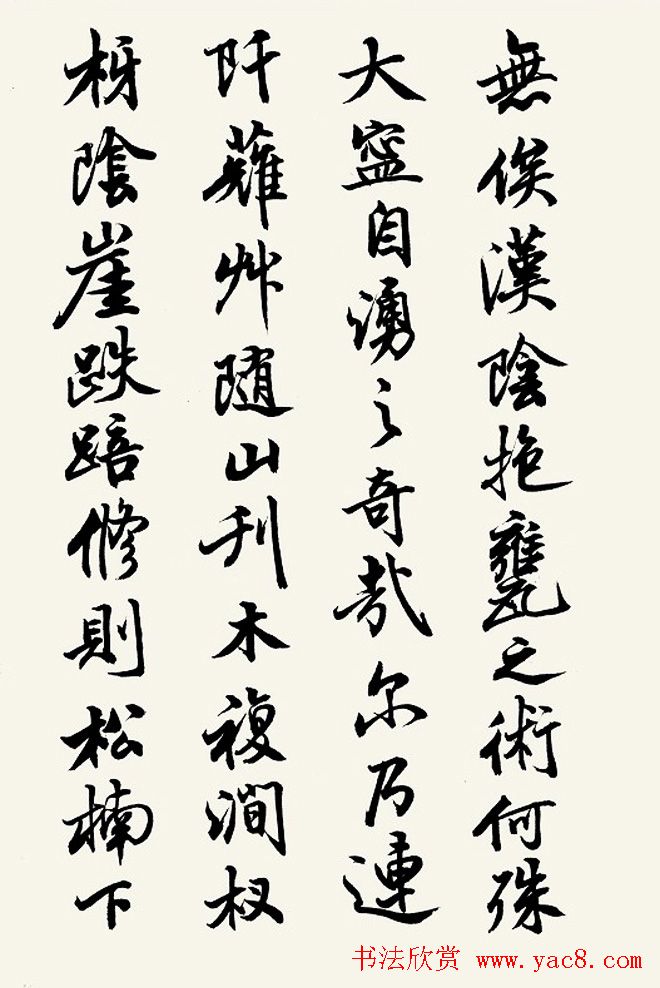 無俟漢陰抱甕之術何殊
大寍自湧之奇哉尔乃連
阡薙艸随山刊木複澗杈
枒陰崖跌踣修則松楠下
书法欣赏 www.yac8.com